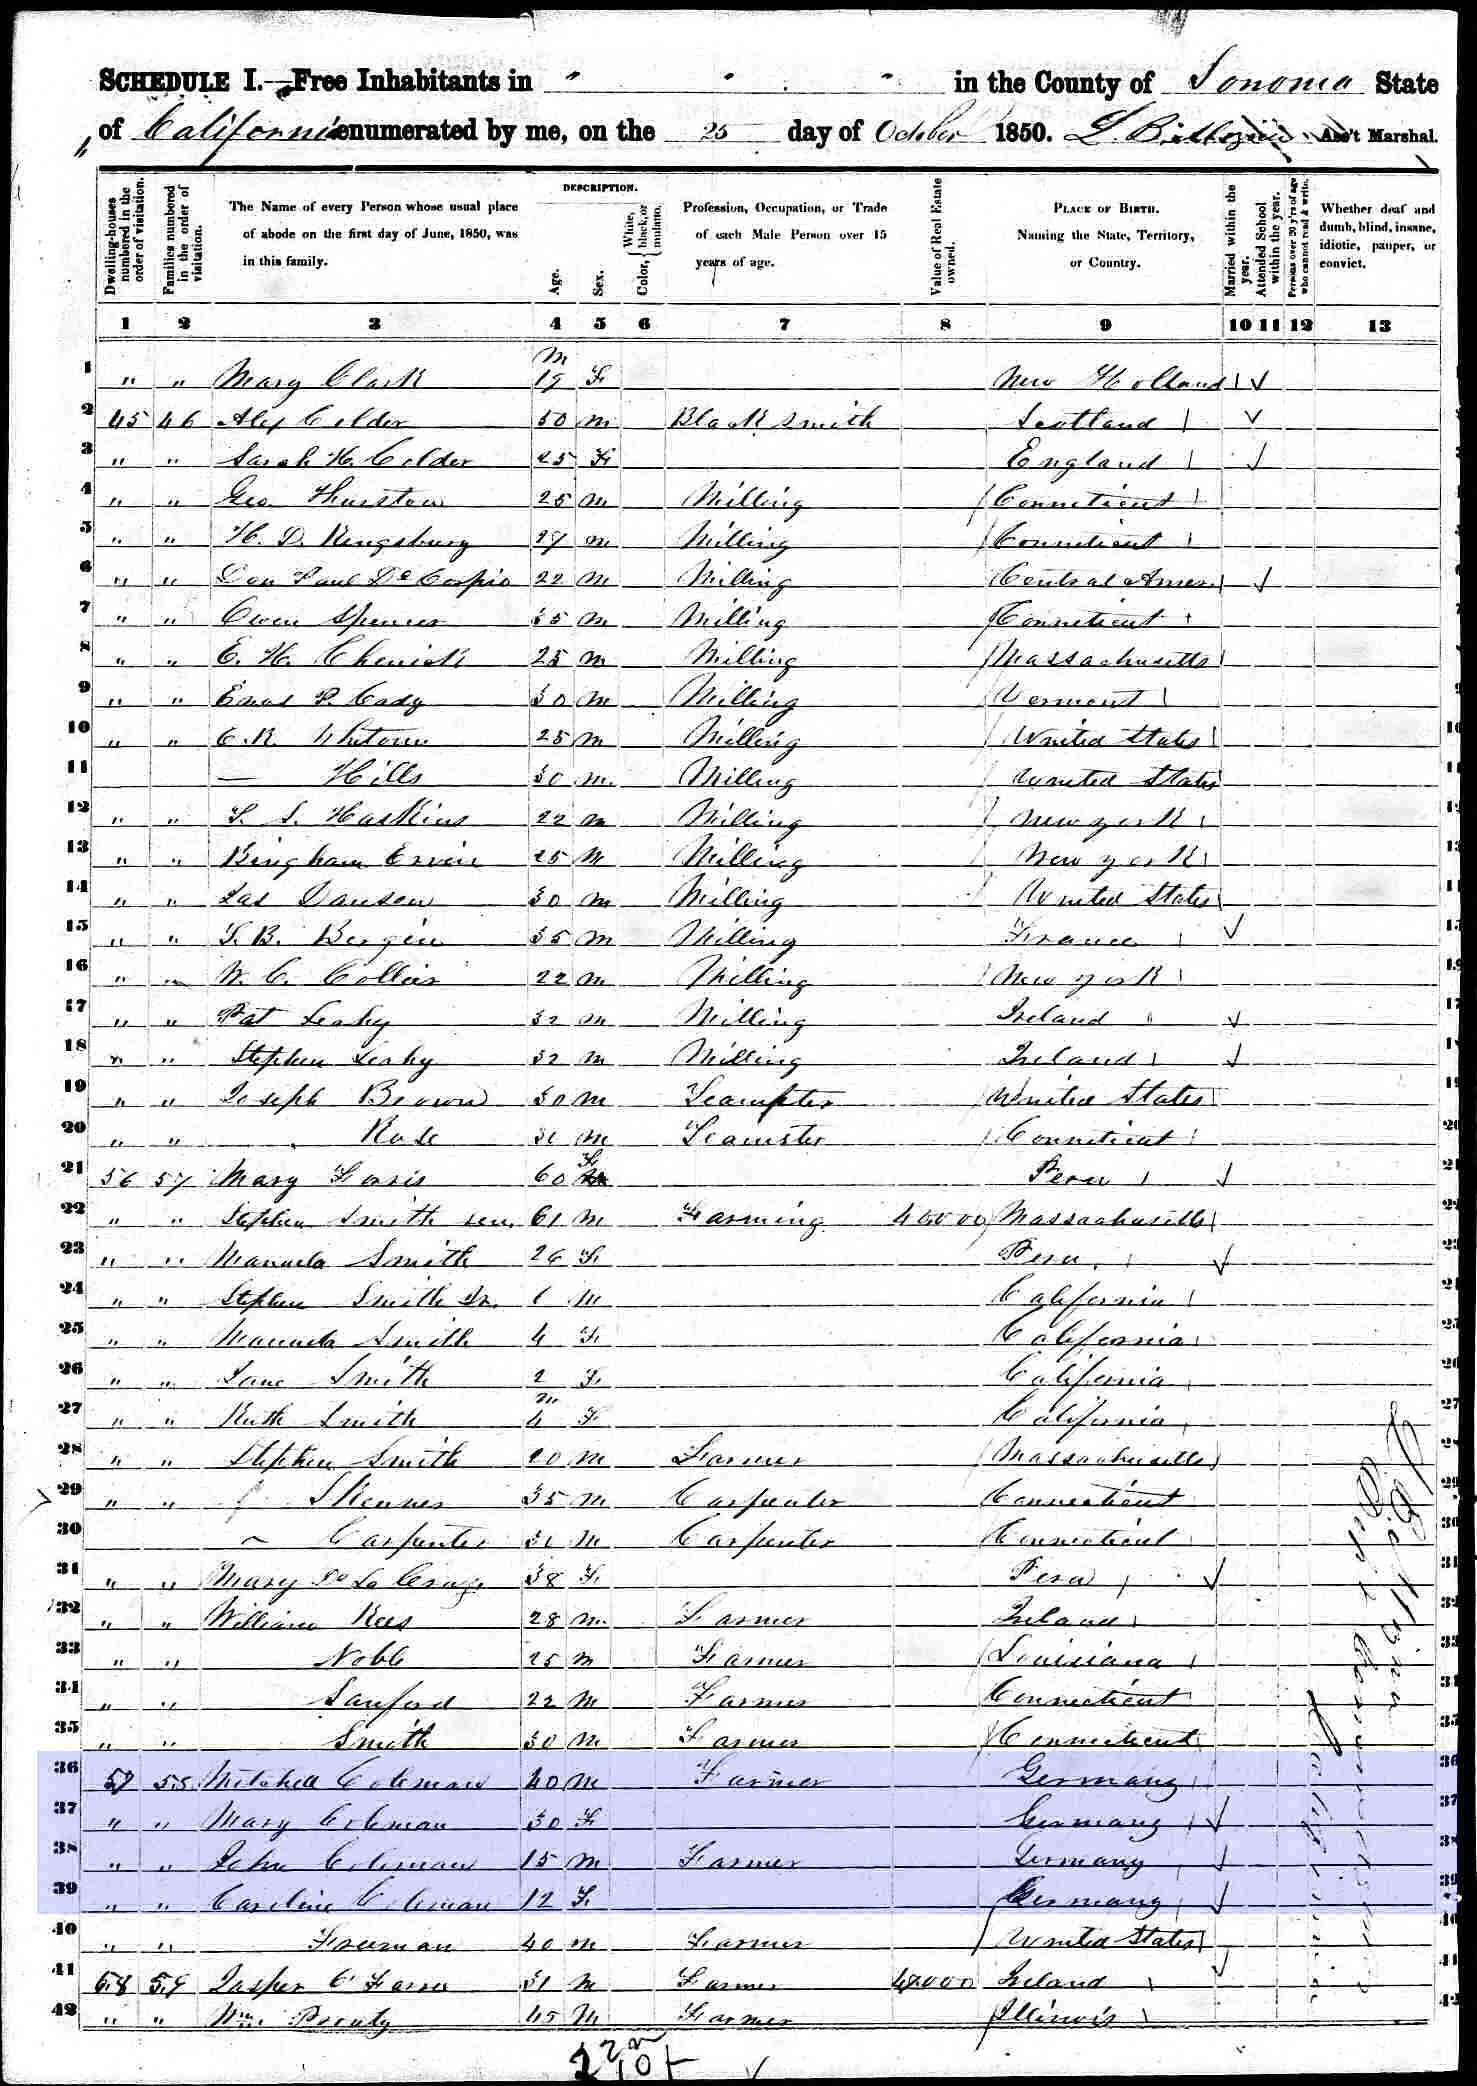 SCHEDULE I.—Free Inhabitants in " " " in the County of Sonoma State
of California enumerated by me, on the 25 day of October 1850. Ass't Marshal.
DESCRIPTION.
Dwelling-houses numbered in the order of visitation.
Families numbered in the order of visitation.
The Name of every Person whose usual place of abode on the first day of June, 1850, was in this family.
Age.
Sex.
Color, { White, black, or mulatto.
Profession, Occupation, or Trade of each Male Person over 15 years of age.
Value of Real Estate owned.
PLACE OF BIRTH. Naming the State, Territory, or Country.
Married within the year.
Attended School within the year.
Persons over 20 y'rs of age who cannot read & write.
Whether deaf and dumb, blind, insane, idiotic, pauper, or convict.
1 2 3 4 5 6 7 8 9 10 11 12 13
1 " " Mary Clark m 19 F New Holland 1
2 45 46 Alex Colder 50 m Black smith Scotland 2
3 " " Sarah H. Colder 25 F England 3
4 " " Geo Thurston 25 m Milling Conneticut 4
5 " " H. D. Kingsbury 27 m Milling Conneticut 5
6 " " Don Paul De Carpio 22 m Milling Central Amer. 6
7 " " Owen Spencer 35 m Milling Conneticut 7
8 " " E. H. 25 m Milling Massachusetts 8
9 " " Enos P. Cady 30 m Milling Vermont 9
10 " " C. R. 25 m Milling United States 10
11 — Hills 30 m. Milling United States 11
12 " " T. S. Haskins 22 m Milling New york 12
13 " " Bingham Ervin 25 m Milling New york 13
14 " " Jas Dawson 30 m Milling United States 14
15 " " T. B. Bergin 35 m Milling France 15
16 " " W. C. Collier 22 m Milling New york 16
17 " " Pat Leahy 32 m Milling Ireland 17
18 " " Stephen Leahy 32 m Milling Ireland 18
19 " " Joseph Brown 30 m Teamster United States 19
20 " " Rose 31 m Teamster Conneticut 20
21 56 57 Mary 60 F Peru 21
22 " " Stephen Smith sen. 61 m Farming 40000 Massachusetts 22
23 " " Manuela Smith 26 F Peru. 23
24 " " Stephen Smith Jr. 6 m California 24
25 " " Manuela Smith 4 F California 25
26 " " Jane Smith 2 F California 26
27 " " Ruth Smith m 4 F California 27
28 " " Stephen Smith 20 m Farmer Massachusetts 28
29 " " Skinner 35 m Carpenter Connecticut 29
30 Carpenter 31 m Carpenter Connecticut 30
31 " " Mary De La Cruz 38 F Peru 31
32 " " William Kees 28 m. Farmer Ireland 32
33 " " Noble 25 m Farmer Louisiana 33
34 " " Sanford 22 m Farmer Connecticut 34
35 " " Smith 30 m Farmer Connecticut 35
36 57 58 Mitchell Coleman 40 m Farmer Germany 36
37 " " Mary Coleman 30 F Germany 37
38 " " John Coleman 15 m Farmer Germany 38
39 " " Caroline Coleman 12 F Germany 39
40 " " Freeman 40 m Farmer United States 40
41 58 59 Jasper O'Farrel 31 m Farmer Ireland 41
42 " " Wm. Prouty 45 m Farmer Illinois 42